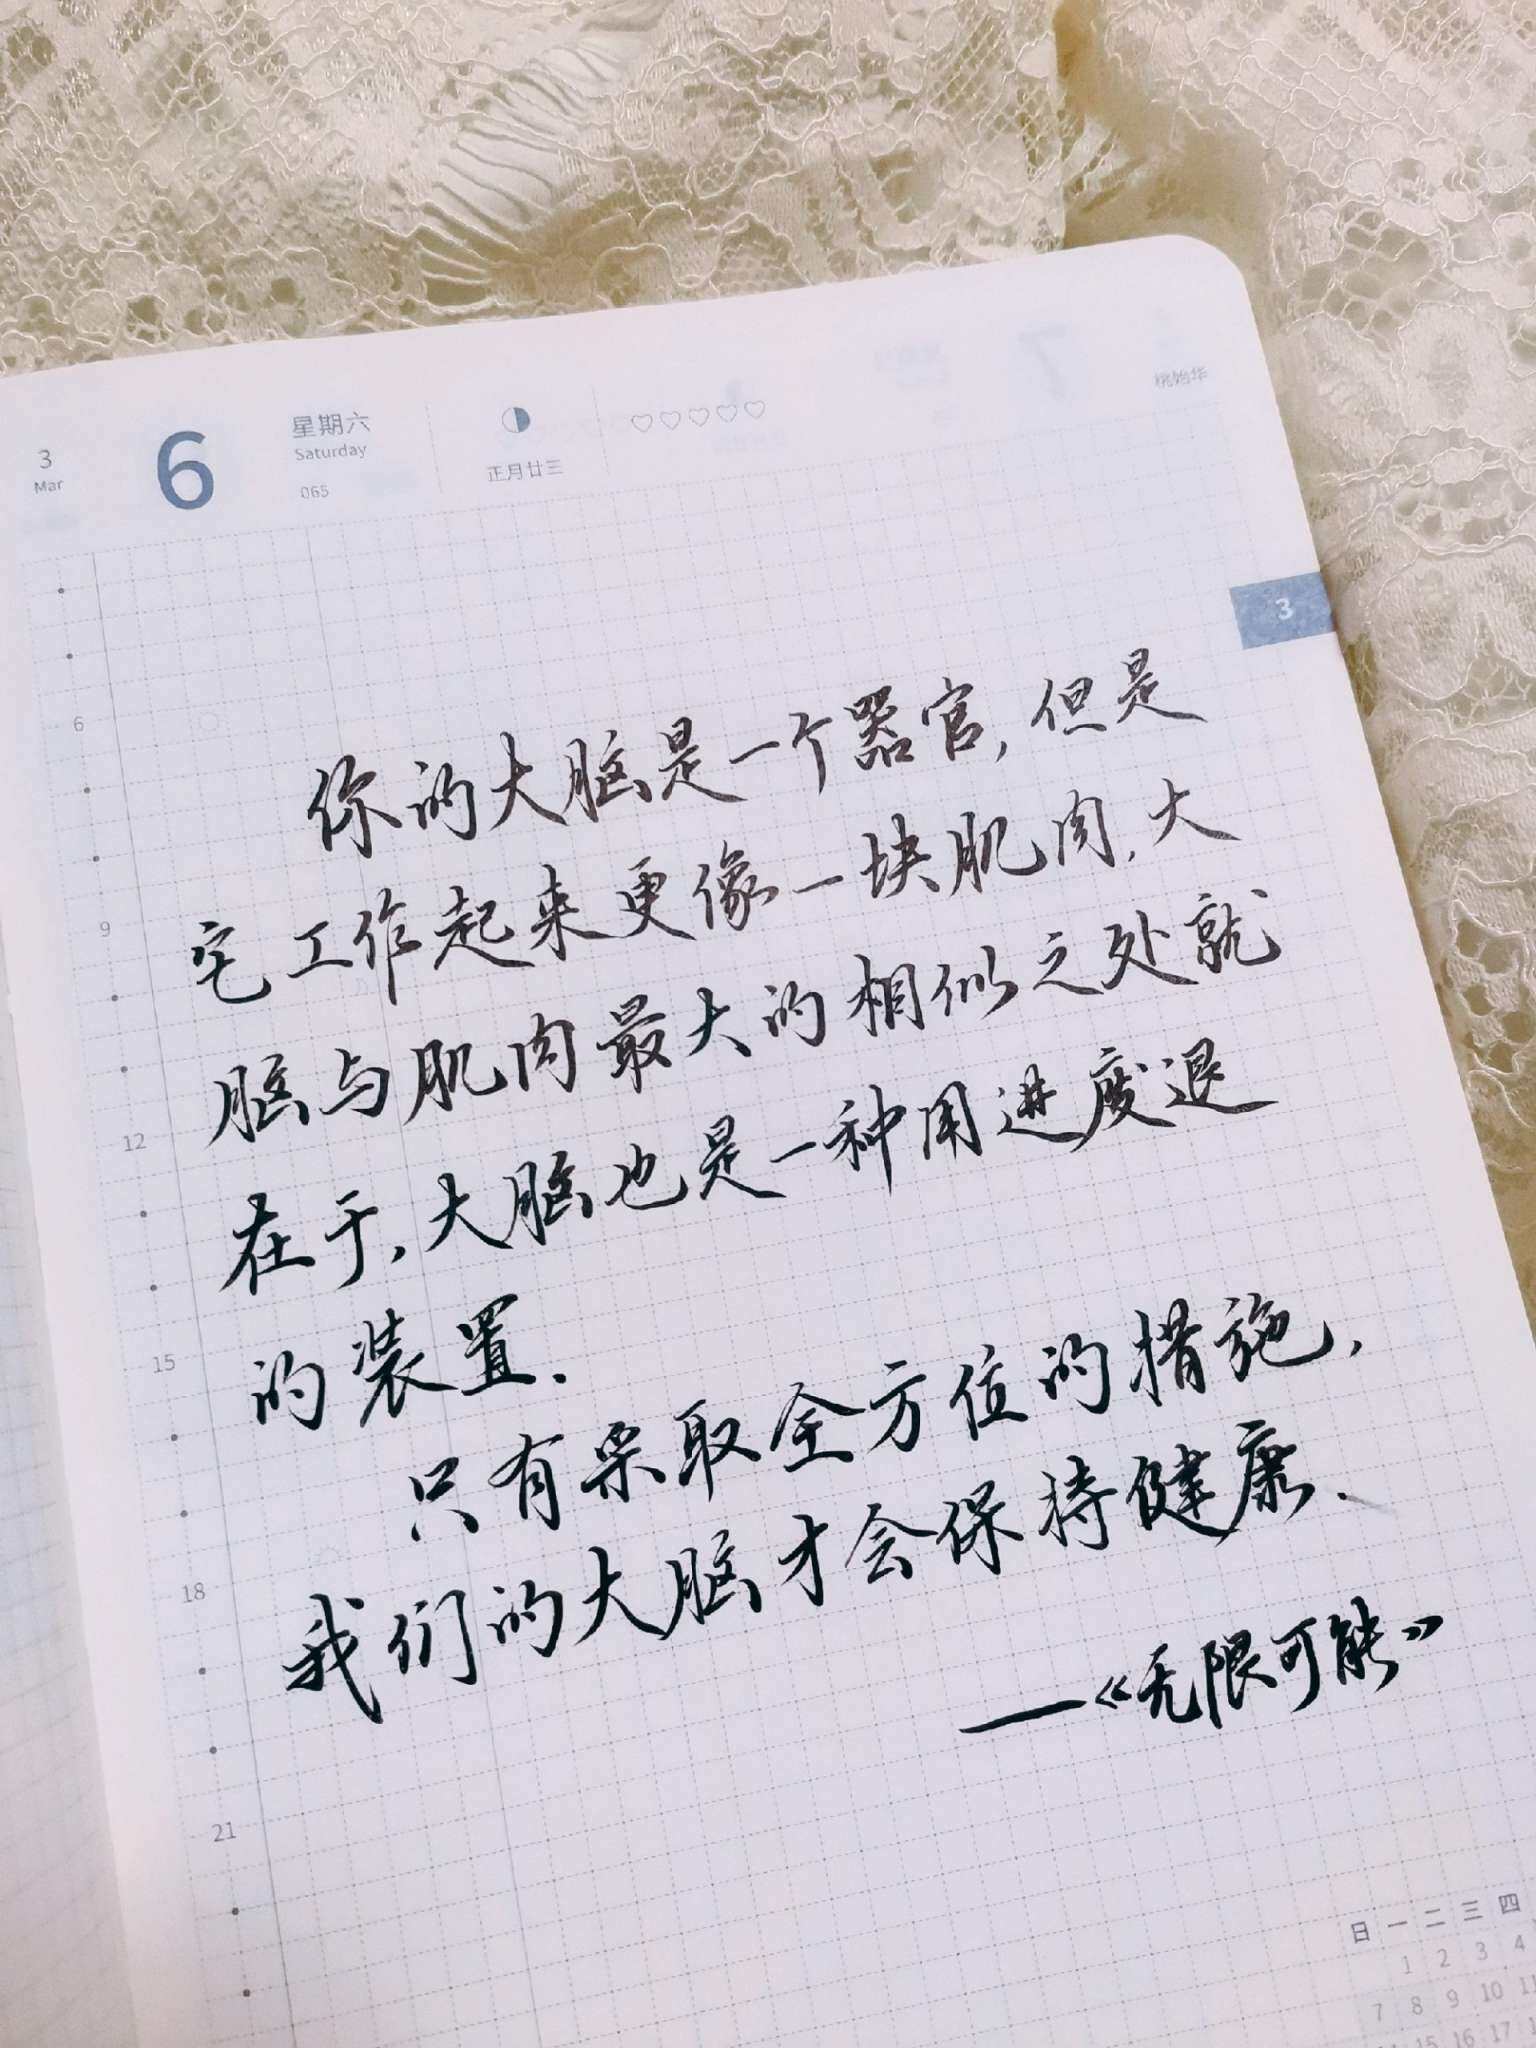 3
Mar
6
星期六
Saturday
065
正月廿三
桃始华
3
6
9
12
15
18
21
你的大脑是一个器官,但是
它工作起来更像一块肌肉,大
脑与肌肉最大的相似之处就
在于,大脑也是一种用进废退
的装置.
只有采取全方位的措施,
我们的大脑才会保持健康.
—《无限可能》
日 一 二 三 四
1 2 3 4
7 8 9 10
15 16 17